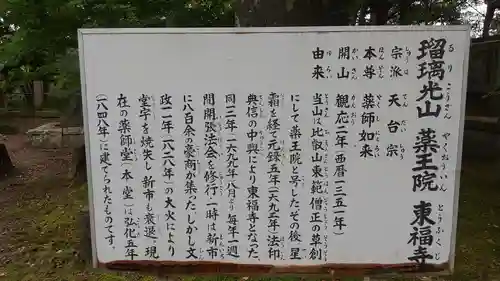 瑠璃光山 薬王院 東福寺
宗派 天台宗
本尊 薬師如来
開山 観応二年 西暦(一三五一年)
由来 当山は比叡山東範僧正の草創
にして薬王院と号した。その後、星
霜を経て元禄五年(一六九二年)法印
興信の中興により東福寺となった。
同十二年(一六九九年)八月より毎年一週
間開張法会を修行、一時は新市
に八百余の豪商が集った。しかし文
政十一年(一八二八年)の大火により
堂宇を焼失し新市も衰退、現
在の薬師堂(本堂)は弘化五年
(一八四八年)に建てられたものです。